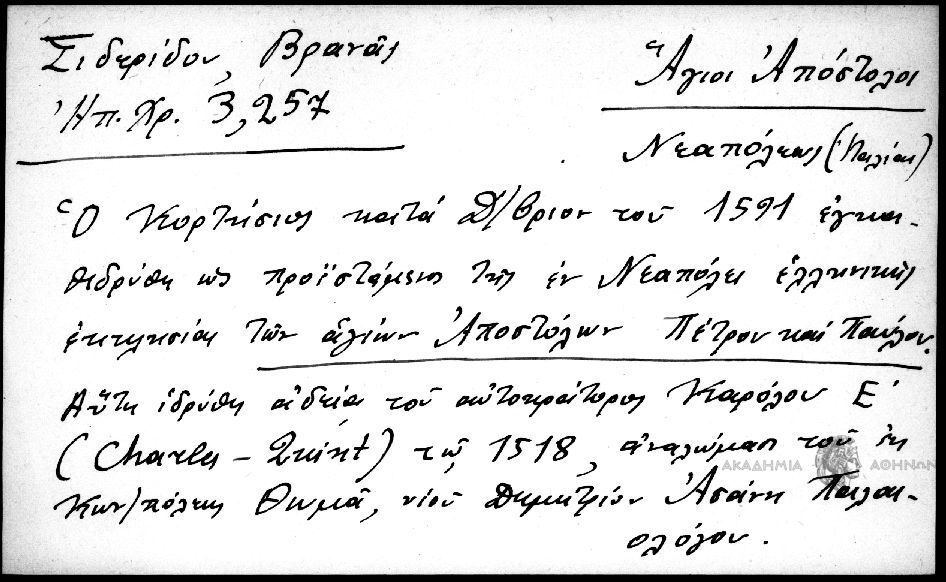 Σιδερίδου, Βρανᾶς
Ἠπ. Χρ. 3, 257
Ἅγιοι Ἀπόστολοι
Νεαπόλεως (Ἰταλίας)
Ὁ Κορτήσιος κατά Δ/βριον τοῦ 1591 ἐγκα-
θιδρύθη ὡς προϊστάμενος τῆς ἐν Νεαπόλει ἑλληνικῆς
ἐκκλησίας τῶν ἁγίων Ἀποστόλων Πέτρου καί Παύλου.
Αὕτη ἱδρύθη ἀδείᾳ τοῦ αὐτοκράτορος Καρόλου Ε΄
(Charles-Quint) τῷ 1518, ἀναλώμασι τοῦ ἐκ
Κων/πόλεως Θωμᾶ, υἱοῦ Δημητρίου Ἀσάνη Παλαι-
ολόγου.
ΑΚΑΔΗΜΙΑ ΑΘΗΝΩΝ